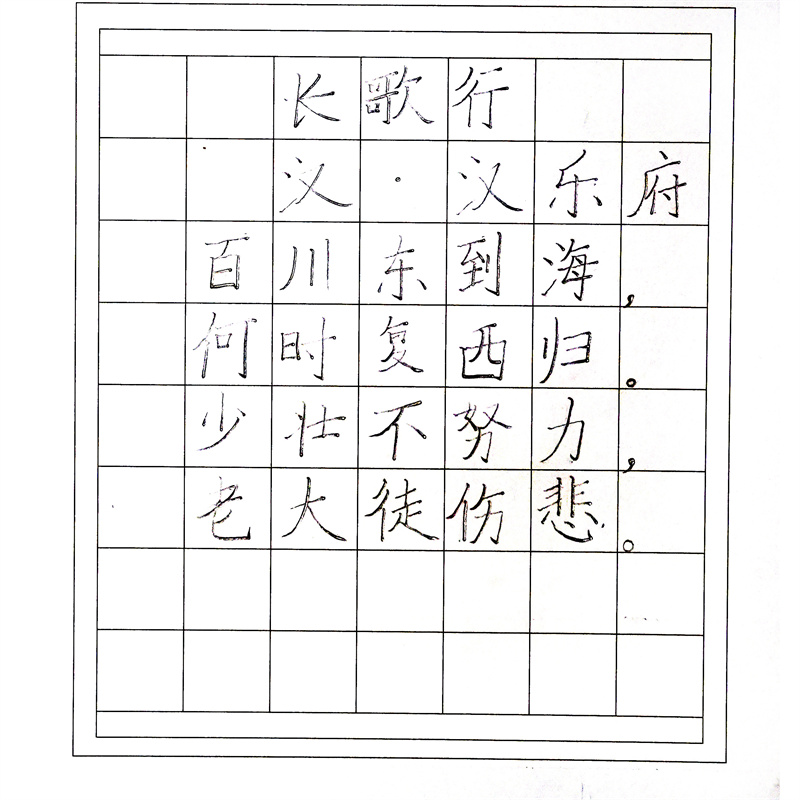 长歌行
汉·汉乐府
百川东到海，
何时复西归。
少壮不努力，
老大徒伤悲。